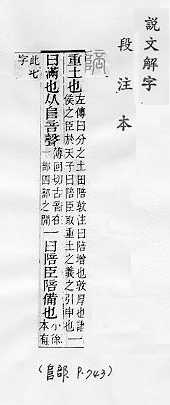 說文解字
段注本
重土也左傳曰分之土田陪敦注曰陪增也敦厚也諸侯之臣於天子曰陪臣取重土之義之引申也一
曰滿也从𨸏咅聲薄回切古音在一部四部之閒一曰陪臣陪備也小徐本有
此七字
(𨸏部 P.743)